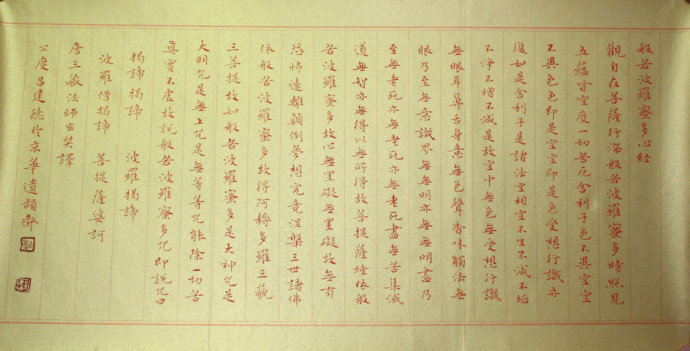 般若波羅蜜多心經
觀自在菩薩行深般若波羅蜜多時照見
五蘊皆空度一切苦厄舍利子色不異空空
不異色色即是空空即是色受想行識亦
復如是舍利子是諸法空相不生不滅不垢
不淨不增不減是故空中無色無受想行識
無眼耳鼻舌身意無色聲香味觸法無
眼界乃至無意識界無無明亦無無明盡乃
至無老死亦無老死盡無苦集滅
道無智亦無得以無所得故菩提薩埵依般
若波羅蜜多故心無罣礙無罣礙故無有
恐怖遠離顛倒夢想究竟涅槃三世諸佛
依般若波羅蜜多故得阿耨多羅三藐
三菩提故知般若波羅蜜多是大神咒是
大明咒是無上咒是無等等咒能除一切苦
真實不虛故說般若波羅蜜多咒即說咒曰
揭諦揭諦 波羅揭諦
波羅僧揭諦 菩提薩婆訶
唐三藏法師玄奘譯
公慶呂建德於京華遺韻齋